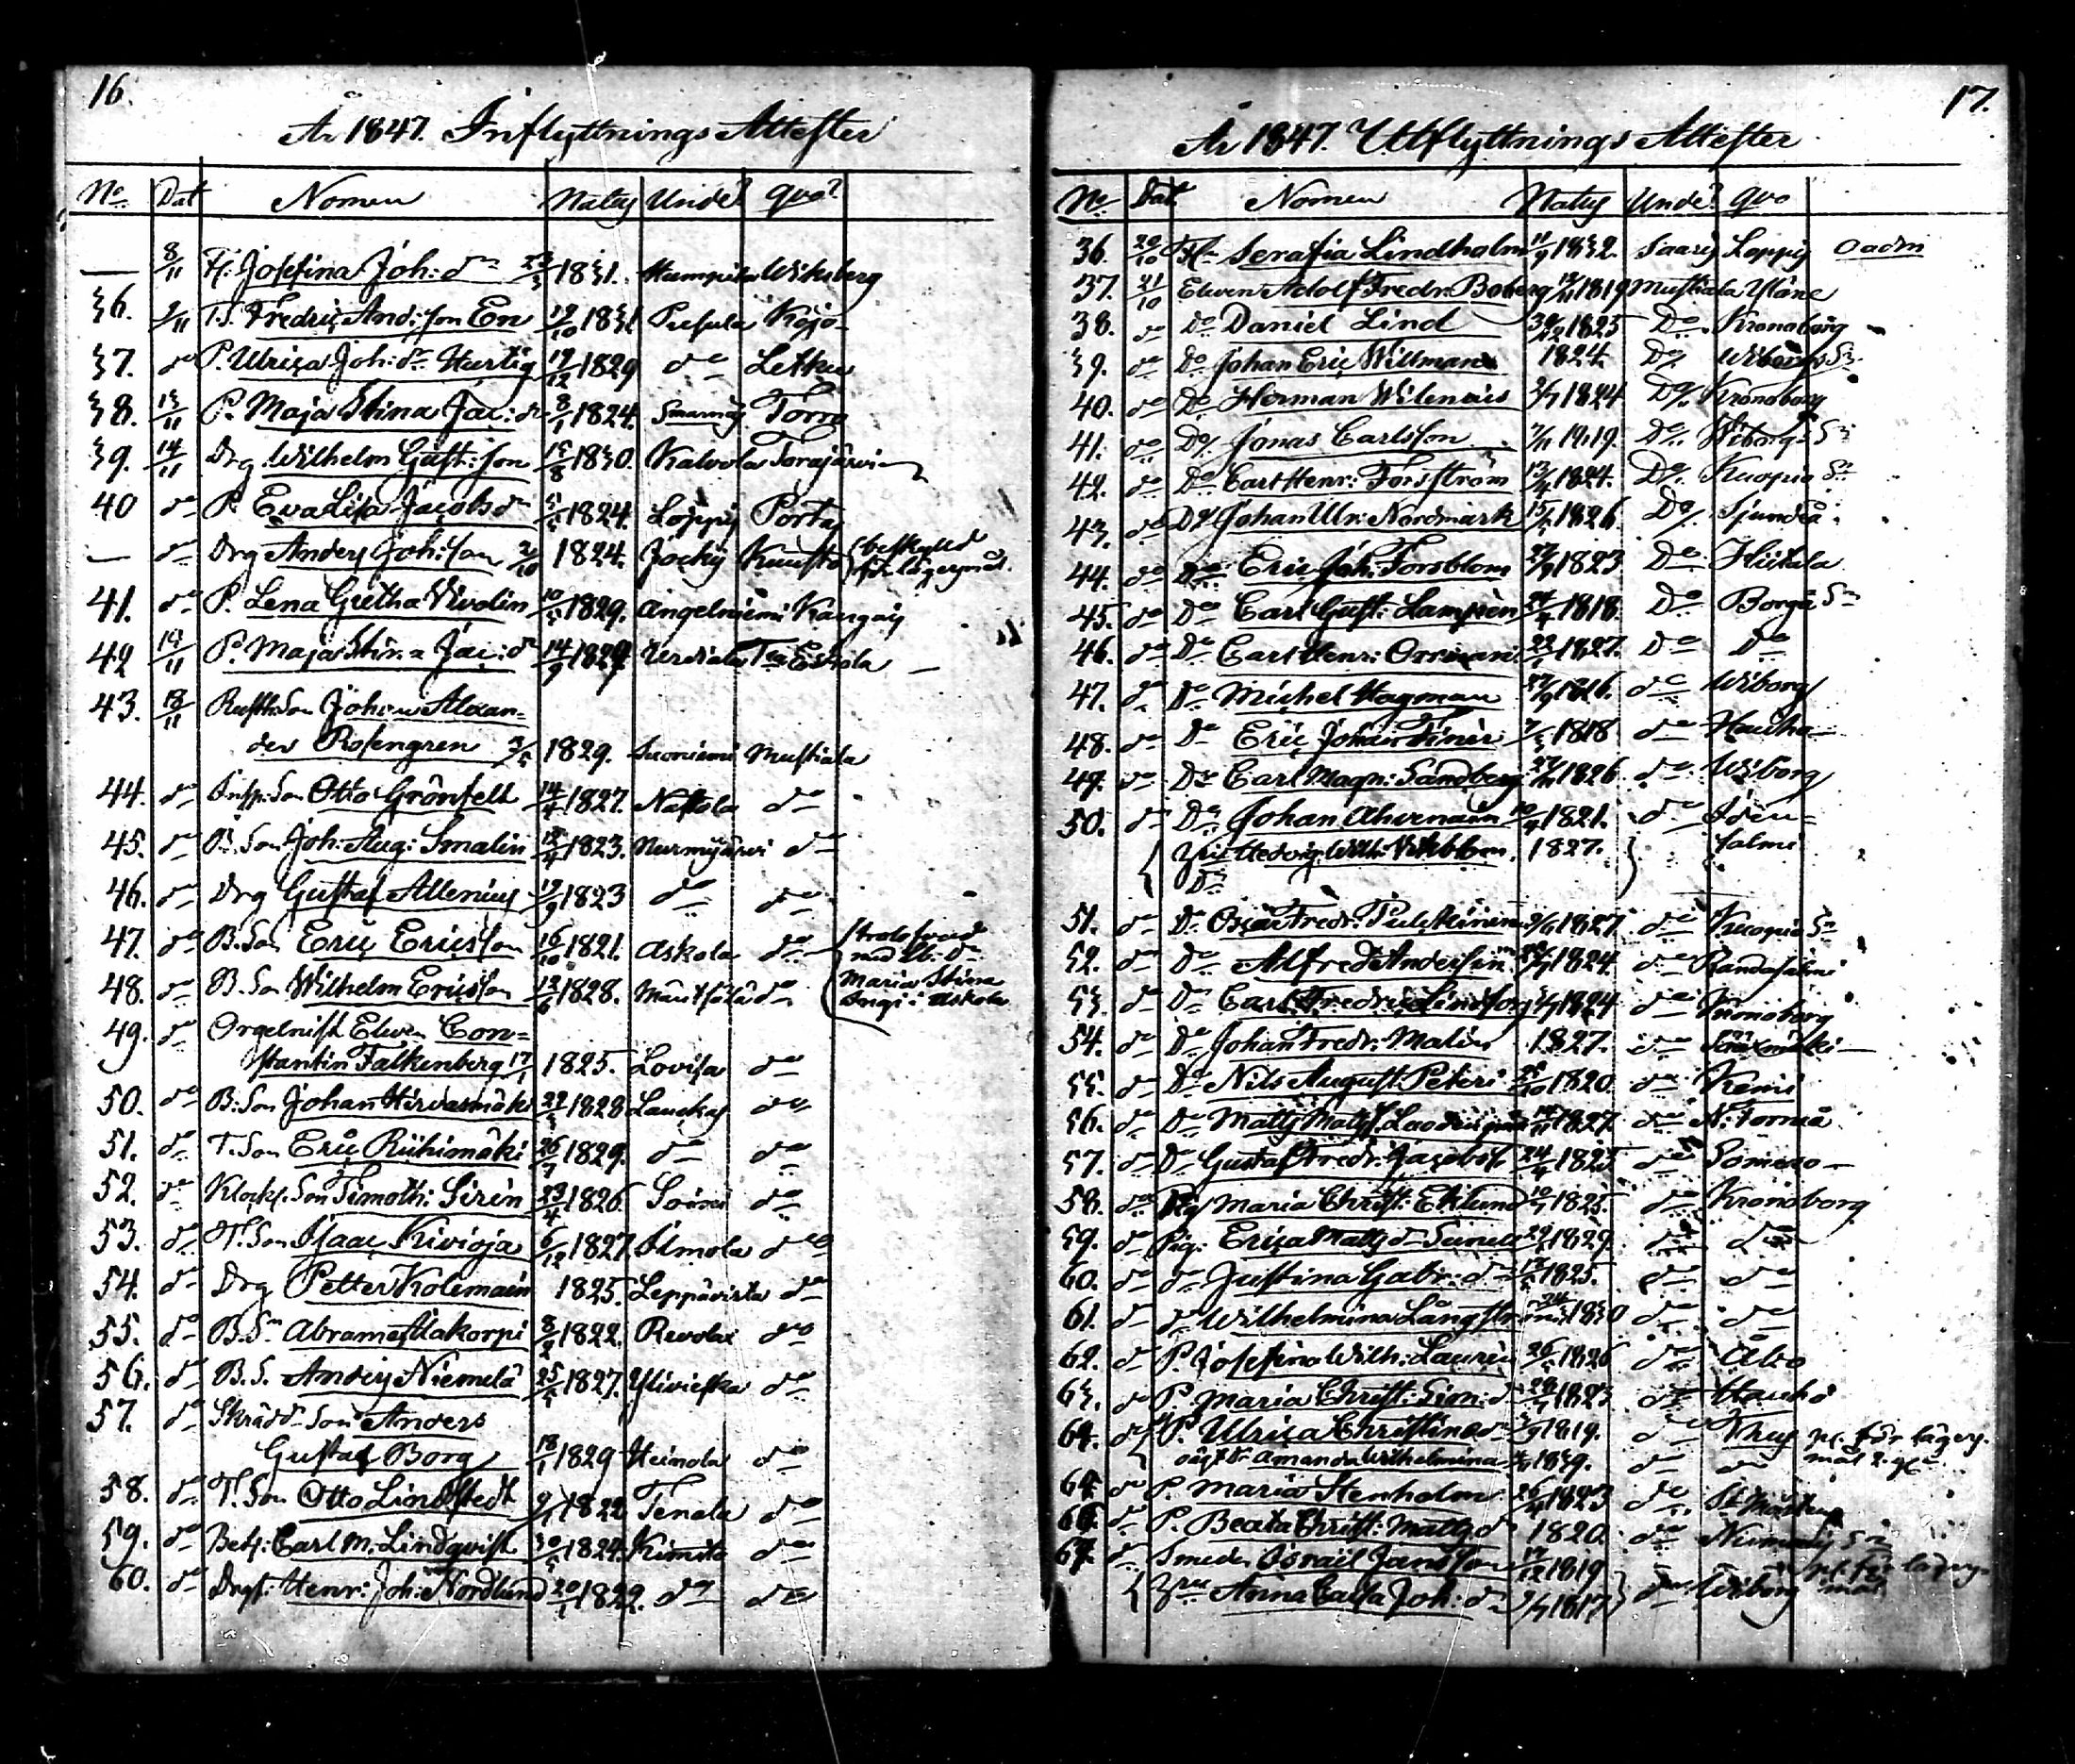 16.
År 1847. Inflyttnings Attester
No Dat Nomen Natus Unde? quo?
— 8/11 H: Josefina Joh: dr 23/3 1831. Humppila Wiksberg
36. 9/11 T.S. Fredric And:son En 19/10 1831 Pusula Kojo
37. do P. Ulrica Joh: dr Hurtig 19/12 1829 do Letku
38. 13/11 P. Maja Stina Jac: dr 8/1 1824. Torro
39. 14/11 Drg Wilhelm Gust: son 15/8 1830. Kalvola Torajärvi
40 do P. Eva Lisa Jacobs dr 1824. Loppis Portas
— do Drg Anders Joh: son 2/10 1824. Jockis Kuusto beskylld
för lägersmål.
41. do P. Lena Gretha Wivolin 1829. Angelniemi Kangais
42 14/11 P. Maja Stina Jac: dr 14/9 1829 Urdiala Eskola
43. 18/11 Rusth. Son Johan Alexan=
der Rosengren 1829. Suoniemi Mustiala
44. do Insp: Son Otto Grönfelt 14/4 1827. Nastola do
45. do B. Son Joh: Aug: Smalin 12/4 1823. Nurmijärvi do
46. do Drg Gustaf Allenius 19/9 1823 do do
47. do B. Son Eric Ericsson 16/10 1821. Askola do trolofvad
med
48. do B. Son Wilhelm Ericsson 1828. Mäntsälä do Maria Stina
i Askola
49. do Orgelnist Eleven Con=
stantin Falkenberg 17/1 1825. Lovisa do
50. do B: Son Johan Hirvasmäki 22/3 1828 Laukas do
51. do T. Son Eric Riihimäki 26/7 1829. do do
52. do Klock. Son Timoth: Sirén 23/4 1826 Soini do
53. do T. Son Isaac Kivioja 6/12 1827. Ilmola do
54. do Drg Petter Kolemain 1825. Leppävirta do
55. do B. Sn Abram Isakorpi 8/2 1822. Revolax do
56. do B. S. Anders Niemelä 25/5 1827. Ylivieska do
57. do Skrädd. Son Anders
Gustaf Borg 18/1 1829 Heinola do
58. do T. Son Otto Lindstedt 9/1 1822 Tenala do
59. do Betj: Carl M. Lindqvist 30/5 1824. Kimito do
60. do Drgs: Henr: Joh: Nordlund 20/1 1822. do do
17.
År 1847. Utflyttnings Attester
No Dat Nomen Natus Unde? quo
36. 20/10 H. Serafia Lindholm 11/9 1832. Saaris Loppis oadm
37. 21/10 Eleven Adolf Fredr. Boberg 1819 Mustiala Yläne
38. do Do Daniel Lind 1825 Do Kronoborg
39. do Do Johan Eric Willman 1824. Do Wiborgs Sn
40. do Do Herman Wilenius 1824 Do Kronoborg
41. do Do Jonas Carlsson 1819. Do Wiborgs Sn
42. do Do Carl Henr: Forsström 13/4 1824. Do Kuopio Sn
43. do Do Johan Ulr: Nordmark 1826. Do Sjundeå
44. do Do Eric Joh: Forsblom 1823 Do Hiitala
45. do Do Carl Gust: Lampén 1818. Do Borgå Sn
46. do Do Carl Henr: Orrman 1827. Do Do
47. do Do Michel Hagman 1826. do Wiborg
48. do Do Eric Johan 1818 do Hauho
49. do Do Carl Magn: Sandberg 1826 do Wiborg
50. do Do Johan Ahvenain 1821. do Iden=
Hedvig Wilh: 1827. salmi
51. do Do Oscar Fredr. Pulckinen 1827. do Kuopio Sn
52. do Do Alfred Anderssin 1824 do Randasalmi
53 do Do Carl Fredric 1824 do Kronoborg
54. do Do Johan Fredr. Malin 1827. do
55. do Do Nils August Peteri 1820. do Kemi
56. do Do Matts Matts. 1827. do N. Torneå
57. do Do Gustaf Fredr. Jacobs. 24/4 1825 do Somero
58. do Pig Maria Christ: Eklund 1825. do Kronoborg
59. do Pig: Erica Matts dr 1829 do do
60. do do Justina Gabr: dr 1825. do do
61. do do Wilhelmina Långstr 1830 do do
62. do P. Josefina Wilh: Laurén 26/5 1826 do Åbo
63. do P. Maria Christ: Sim: dr 1823 do Hauho
64. do P. Ulrica Christina dr 1819. do pl. för lägers=
oäkt. dr Amanda Wilhelmina 1839. do do mål
65. do P. Maria Stenholm 26/4 1823 do
66. do P. Beata Christ: Matts dr 1820. do
67. do Smeden Israel Jansson 1819
Anna Caisa Joh: dr 1817 do Wiborg